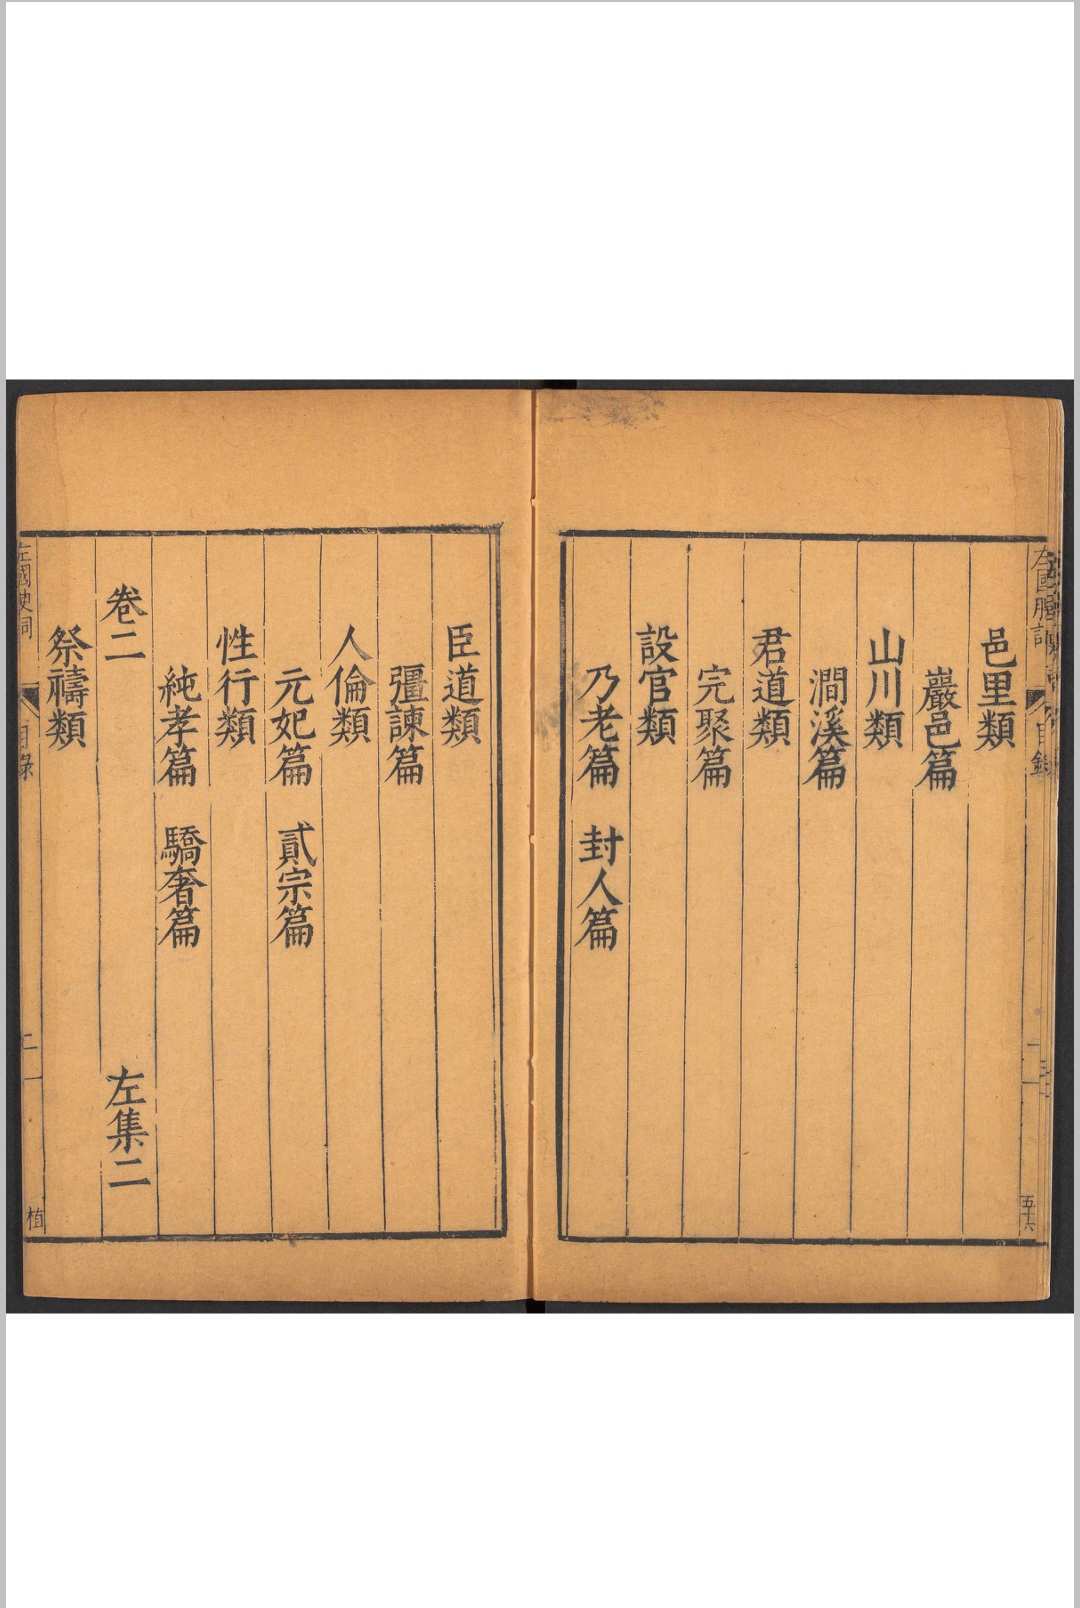 邑里類
巖邑篇
山川類
澗溪篇
君道類
完聚篇
設官類
乃老篇 封人篇
臣道類
彊諫篇
人倫類
元妃篇 貳宗篇
性行類
純孝篇 驕奢篇
卷二 左集二
祭禱類
目錄
五十六
植